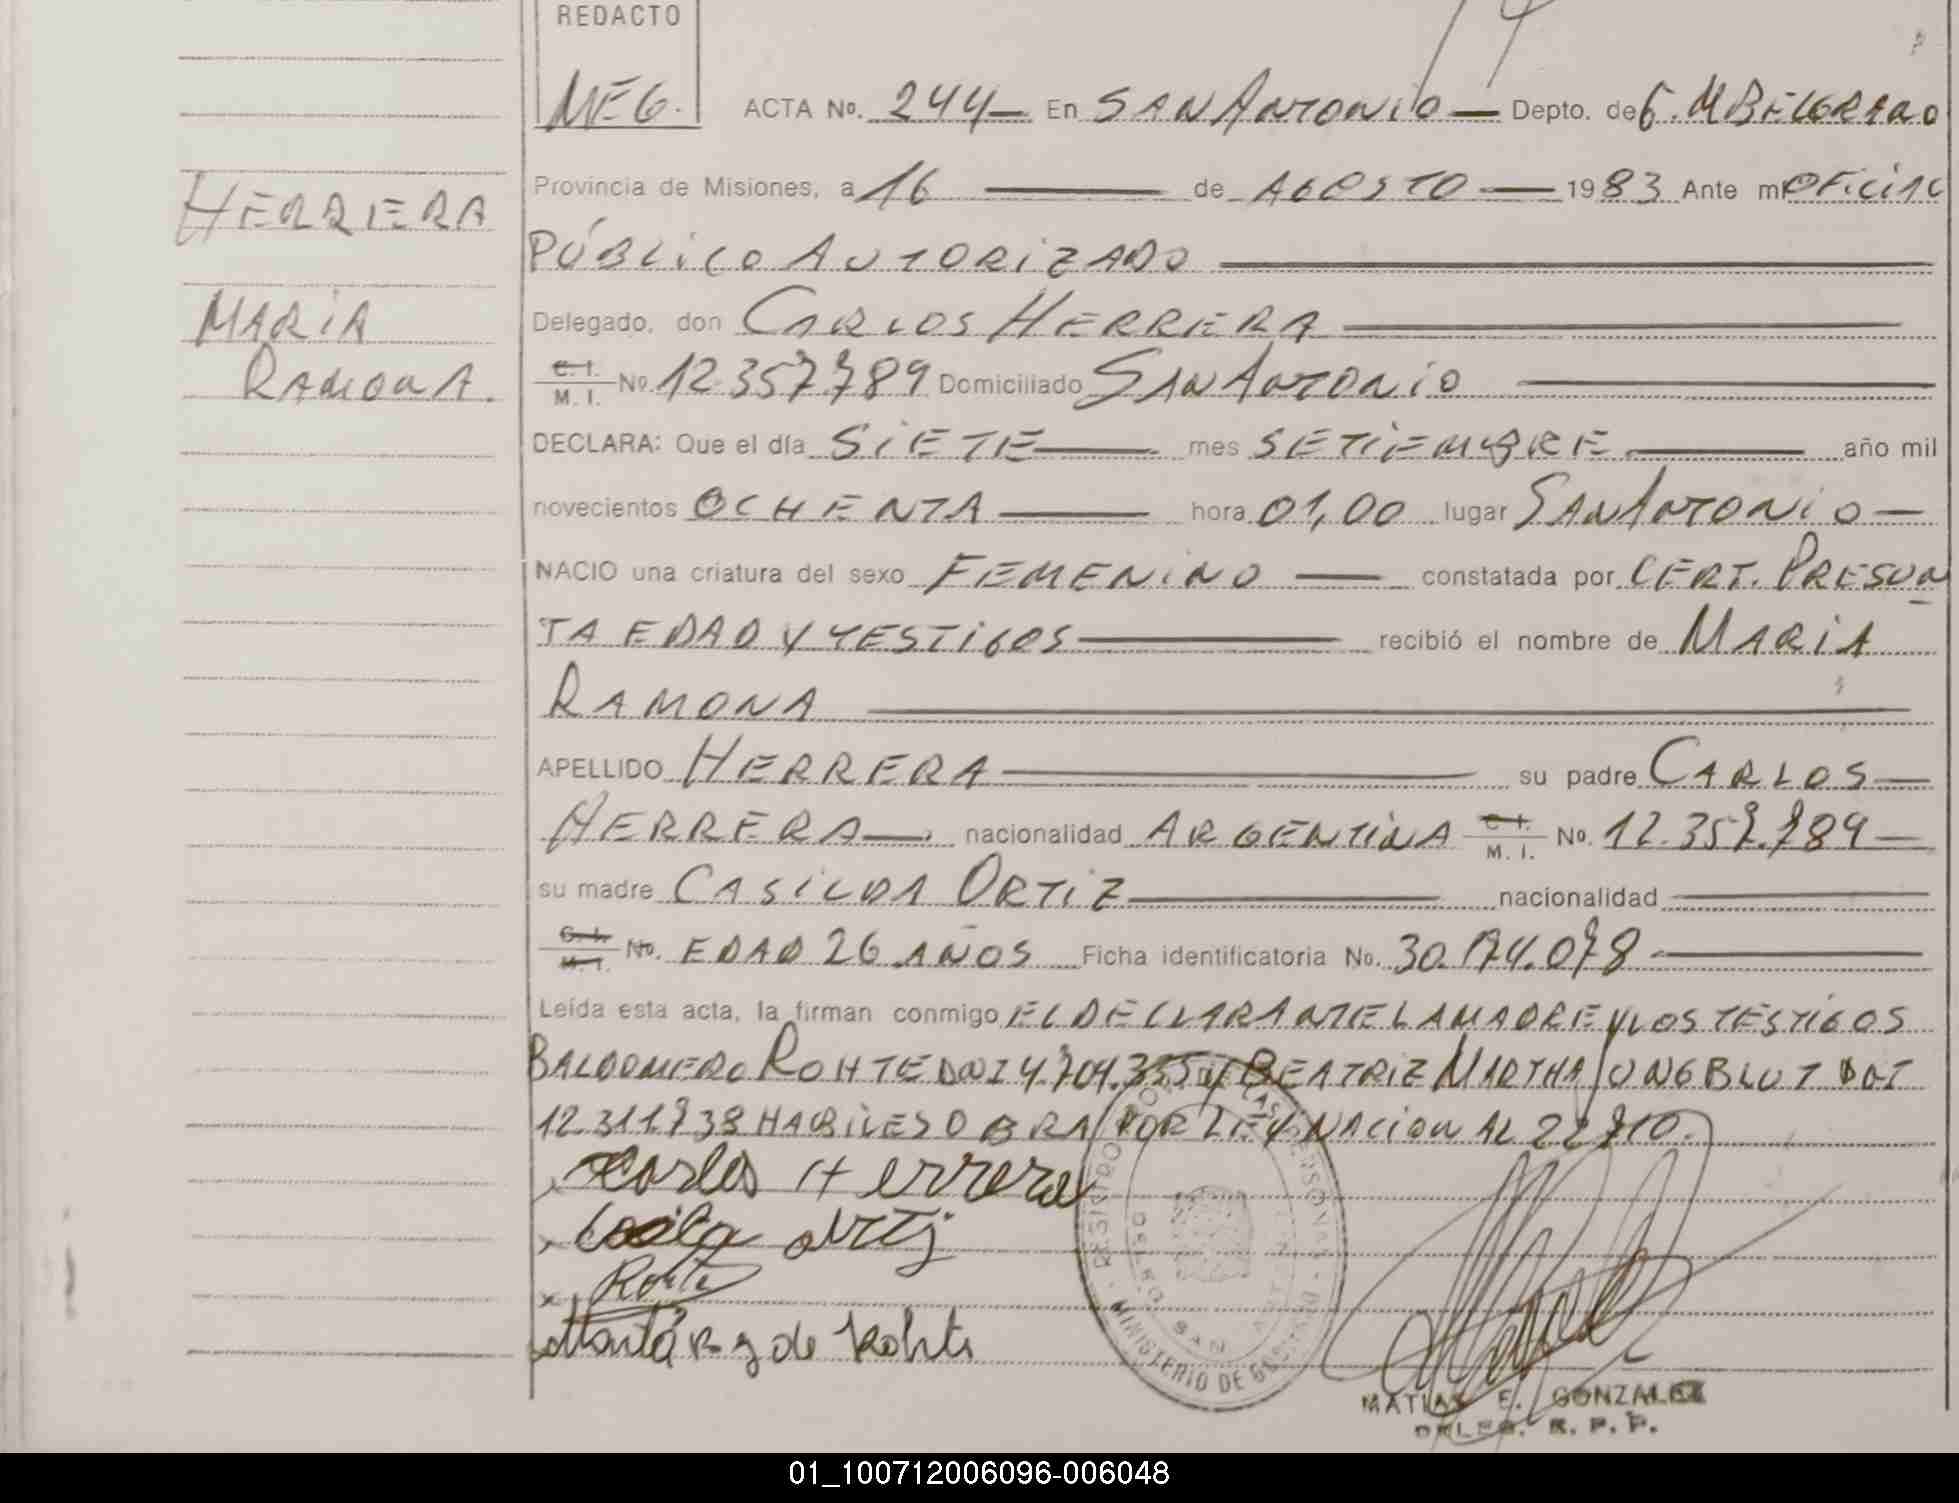 REDACTO
MEG.
ACTA No. 244 En SAN ANTONIO Depto. de G. M BELGRANO
Provincia de Misiones, a 16 de AGOSTO 1983 Ante mi OFICIAL
PÚBLICO AUTORIZADO
HERRERA
MARIA
RAMONA.
Delegado, don CARLOS HERRERA
C. I.
M. I. No. 12.357.789 Domiciliado SAN ANTONIO
DECLARA: Que el día SIETE mes SETIEMBRE año mil
novecientos OCHENTA hora 01,00 lugar SAN ANTONIO
NACIO una criatura del sexo FEMENINO constatada por CERT. PRESUN
TA EDAD Y TESTIGOS recibió el nombre de MARIA
RAMONA
APELLIDO HERRERA su padre CARLOS
HERRERA nacionalidad ARGENTINA C. I. M. I. No. 12.357.789
su madre CASILDA ORTIZ nacionalidad
C. I. M. I. No. EDAD 26 AÑOS Ficha identificatoria No. 30.174.078
Leída esta acta, la firman conmigo EL DECLARANTE LA MADRE Y LOS TESTIGOS
BALDOMERO ROHTE DNI 4.704.335 Y BEATRIZ MARTHA JUNGBLUT DNI
12.311.738 HABILES OBRA POR LEY NACIONAL 22710.
Carlos Herrera
ortiz
Rohte
Marta B J de Rohte
REGISTRO PERSONAS
MINISTERIO DE GOBIERNO
SAN ANT
MATIAS E. GONZALEZ
DELEG. R. P. P.
01_100712006096-006048